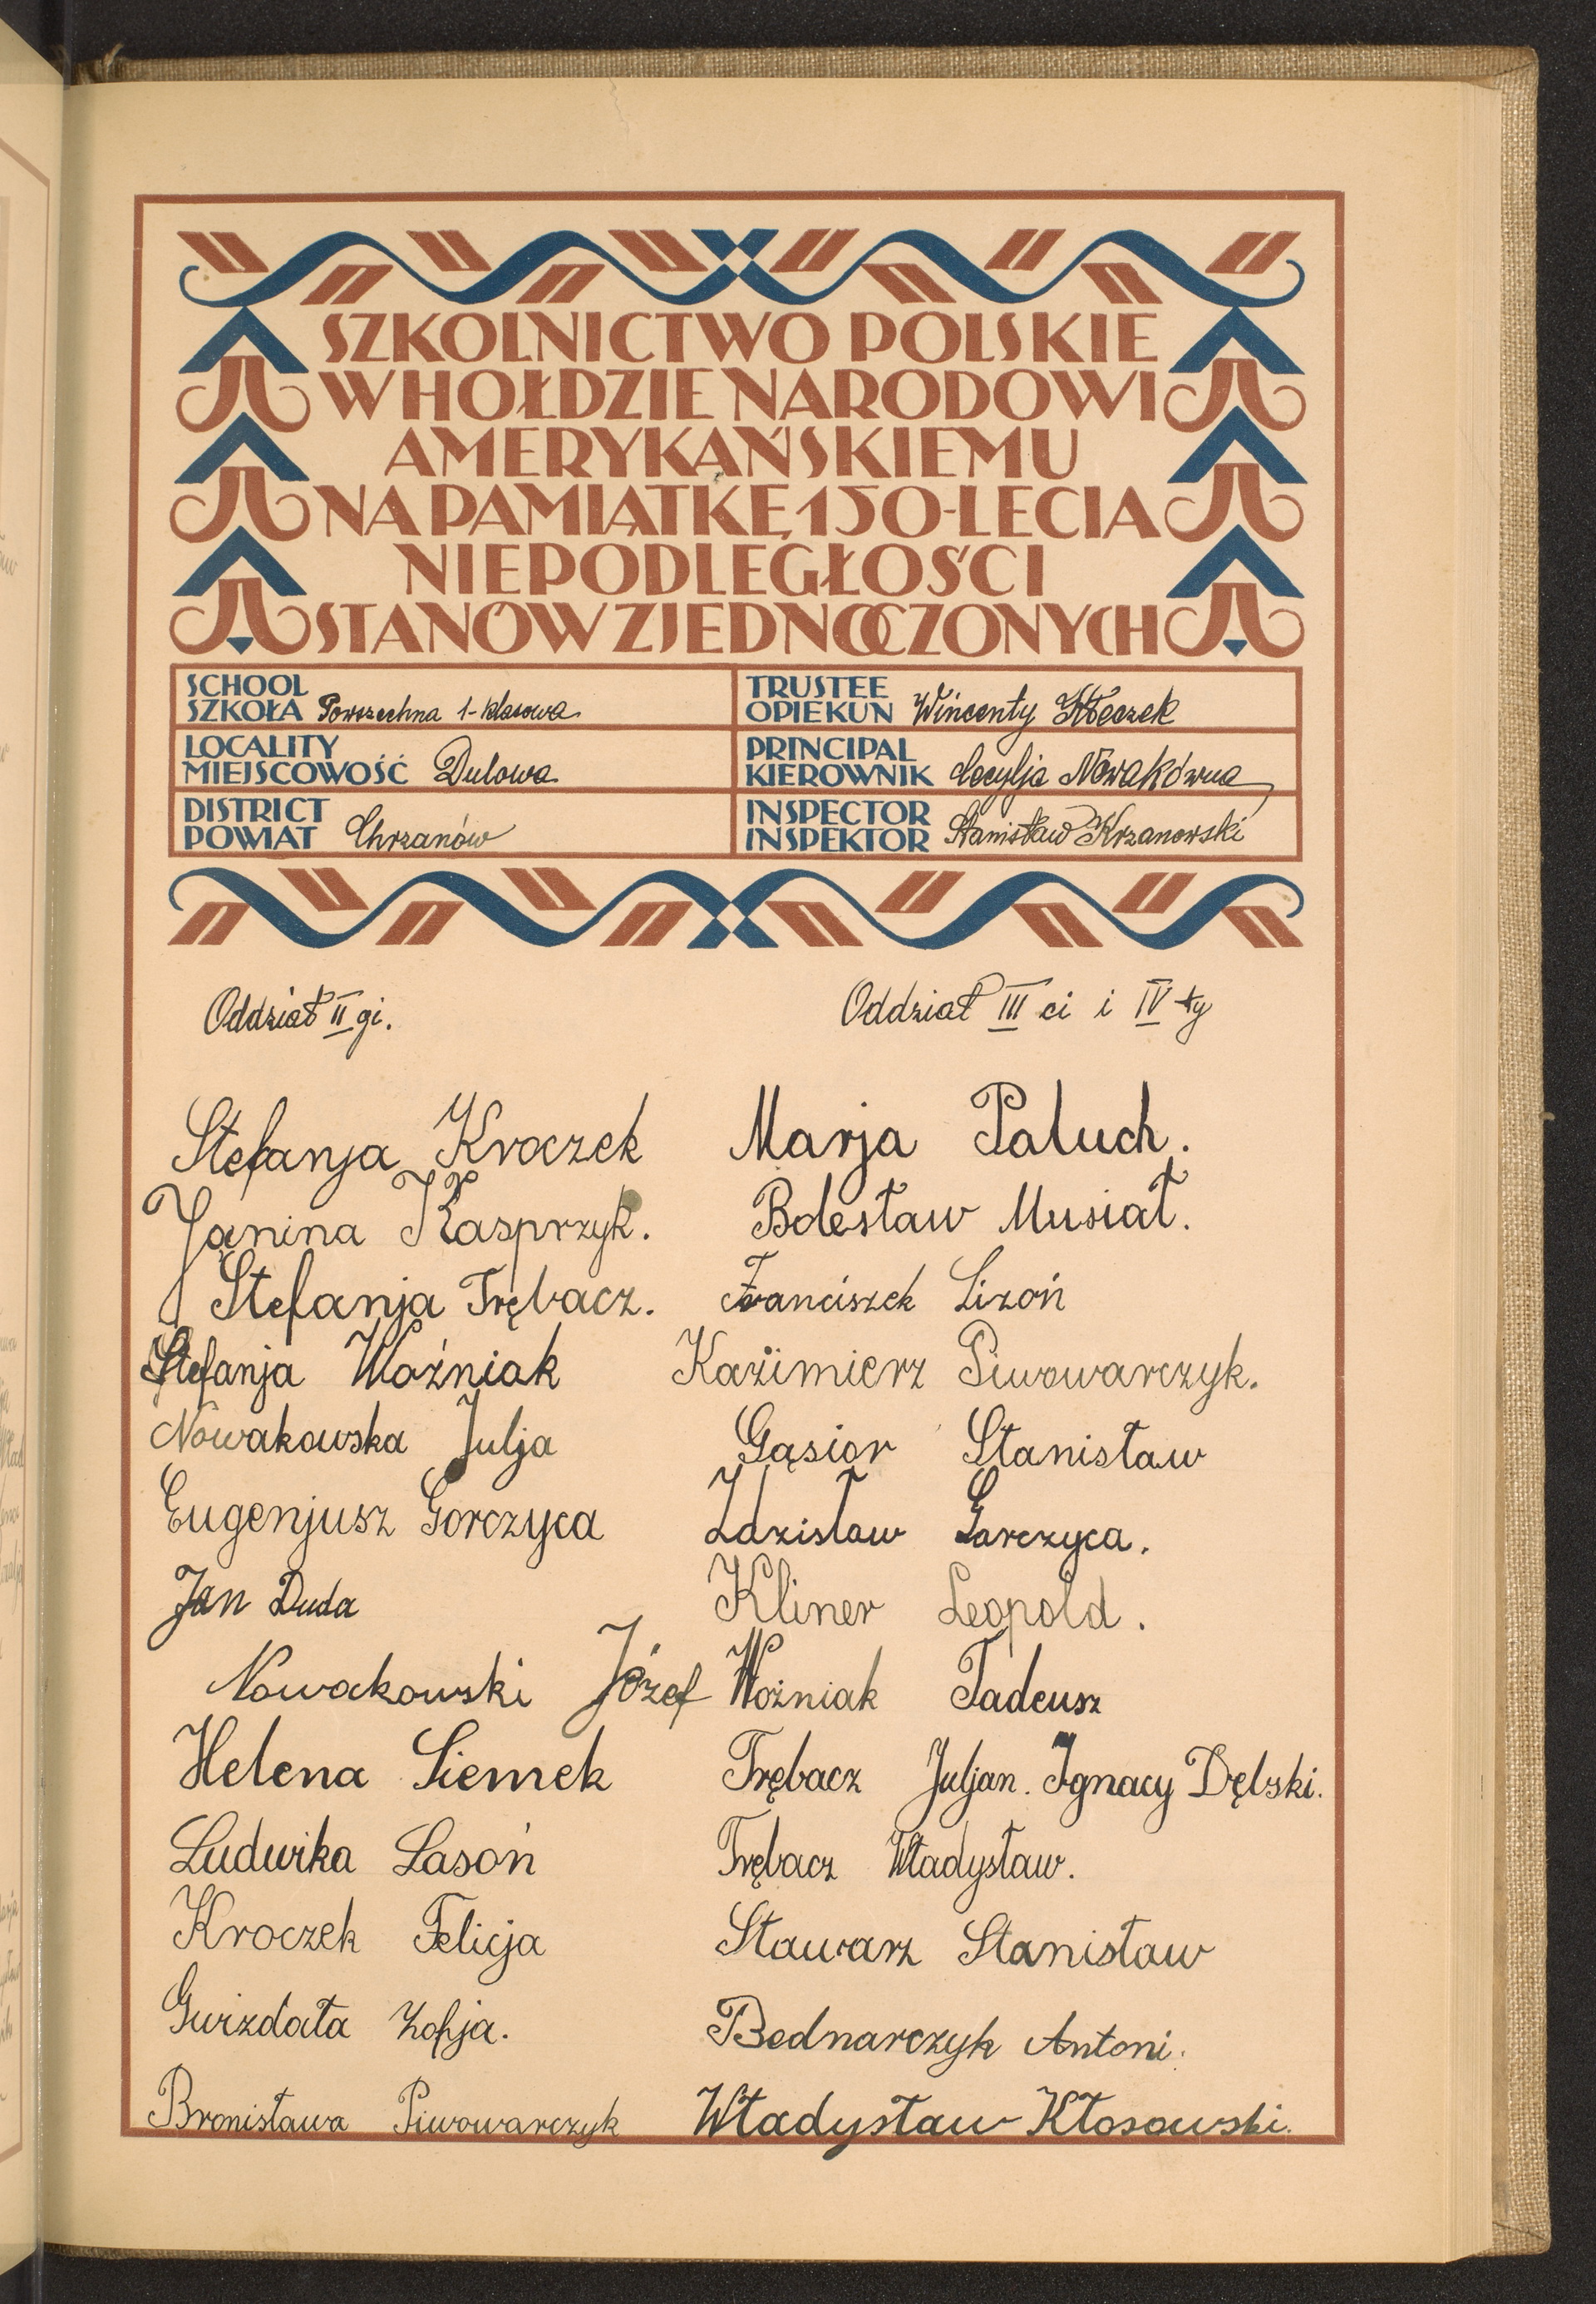 SZKOLNICTWO POLSKIE
W HOŁDZIE NARODOWI
AMERYKAŃSKIEMU
NA PAMIĄTKĘ 150-LECIA
NIEPODLEGŁOŚCI
STANÓW ZJEDNOCZONYCH
SCHOOL
SZKOŁA Powszechna 1-klasowa
TRUSTEE
OPIEKUN Wincenty Kłeczek
LOCALITY
MIEJSCOWOŚĆ Dulowa
PRINCIPAL
KIEROWNIK Cecylja Nowakówna
DISTRICT
POWIAT Chrzanów
INSPECTOR
INSPEKTOR Stanisław Krzanowski
Oddział II gi.
Stefanja Kroczek
Janina Kasprzyk.
Stefanja Trębacz.
Stefanja Woźniak
Nowakowska Julja
Eugenjusz Gorczyca
Jan Duda
Nowakowski Józef
Helena Siemek
Ludwika Lasoń
Kroczek Felicja
Gwizdała Zofja.
Bronisława Piwowarczyk
Oddział III ci i IV ty
Marja Paluch.
Bolesław Musiał.
Franciszek Lizoń
Kazimierz Piwowarczyk.
Gąsior Stanisław
Zdzisław Garczyca.
Kliner Leopold.
Woźniak Tadeusz
Trębacz Juljan. Ignacy Dębski.
Trębacz Władysław.
Stawarz Stanisław
Bednarczyk Antoni.
Władysław Kłosowski.